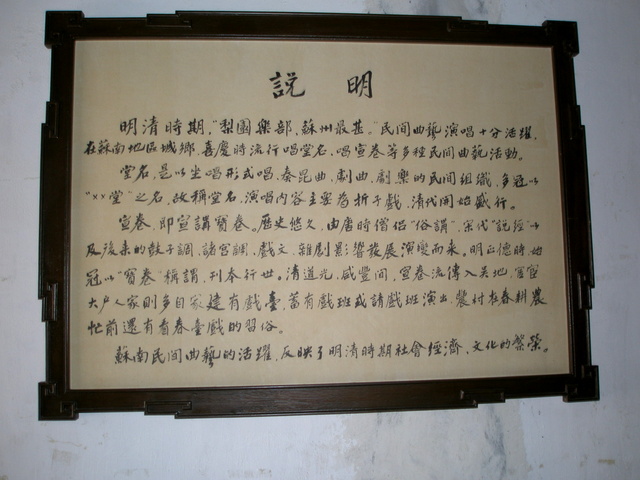 説 明
明清時期，“梨園樂部，蘇州最甚。”民间曲藝演唱十分活躍，
在蘇南地區城鄉，喜慶時流行唱堂名、唱宣卷等多種民间曲藝活動。
堂名，是以坐唱形式唱、奏昆曲、劇曲、劇樂的民间組織，多冠以
“××堂”之名，故稱堂名，演唱内容主要為折子戲，清代開始盛行。
宣卷，即宣講寶卷。歷史悠久，由唐時僧侣“俗講”、宋代“説經”
及後来的鼓子調、諸宫調、戲文、雜劇影響發展演變而来。明正德時，始
冠以“寶卷”稱謂，刊本行世。清道光、咸豐间，宣卷流傳入吴地，官宦
大户人家則多自家建有戲臺，蓄有戲班或請戲班演出，農村在春耕農
忙前還有看春臺戲的習俗。
蘇南民间曲藝的活躍，反映了明清時期社會經濟、文化的繁榮。